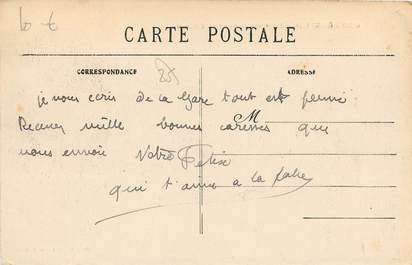 CARTE POSTALE
CORRESPONDANCE
ADRESSE
je vous ecris de la gare tout est fermé
M
Recevez mille bonnes caresses que
vous envoie Votre Felix
qui t'aime a la folie